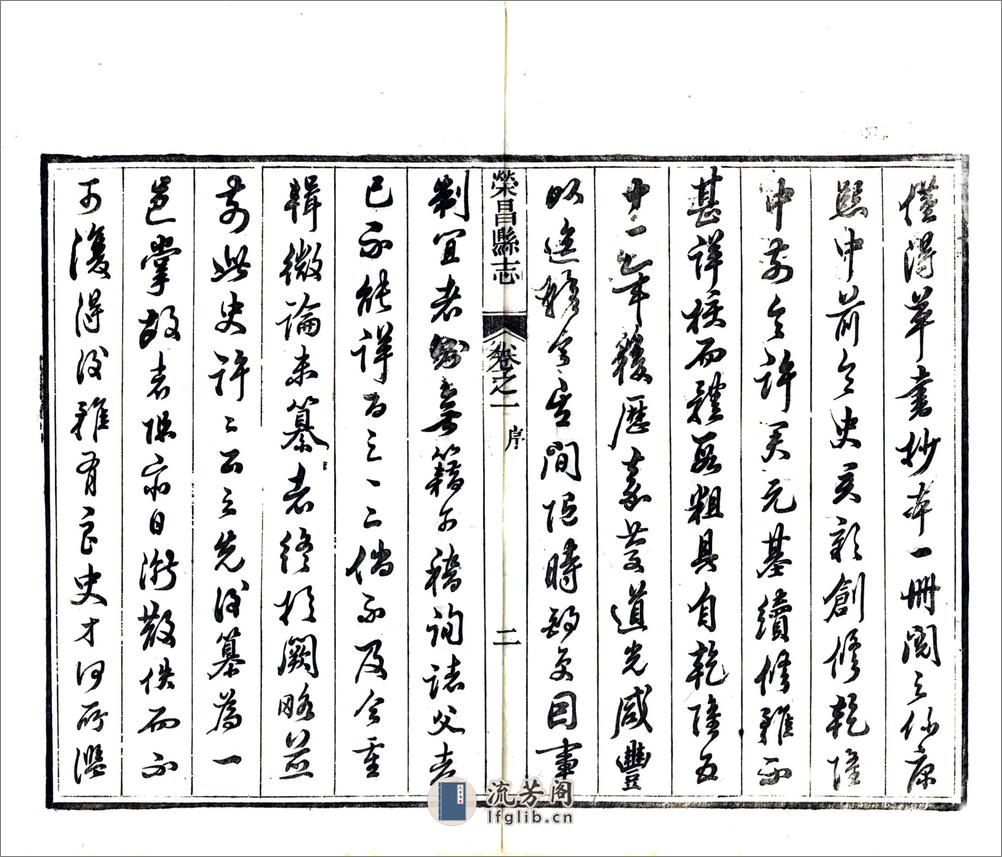 僅得草書抄本一冊閱之係康
熙中前令史君彩創修乾隆
中前令許君元基續修雖不
甚詳核而體段粗具自乾隆五
十一年後歷嘉慶道光咸豐
時
制宜者無籍可稽詢諸父老
已不能詳百之一二倘不及今重
輯微論未纂者終於闕略並
前此史許二公之先後纂為一
邑掌故者恐亦日漸散佚而不
可復得後雖有良史才何所
榮昌縣志
卷之一
序
二
流芳阁
lfglib.cn